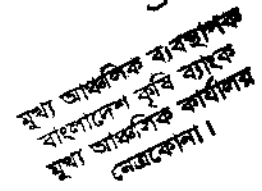 মুখ্য আঞ্চলিক ব্যবস্থাপক
বাংলাদেশ কৃষি ব্যাংক
মুখ্য আঞ্চলিক কার্যালয়
নেত্রকোনা।